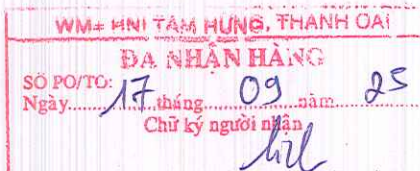 WM+ HNI TAM HUNG, THANH OAI
ĐA NHẬN HÀNG
SỐ PO/TO:
Ngày 17 tháng 09 năm 25
Chữ ký người nhận